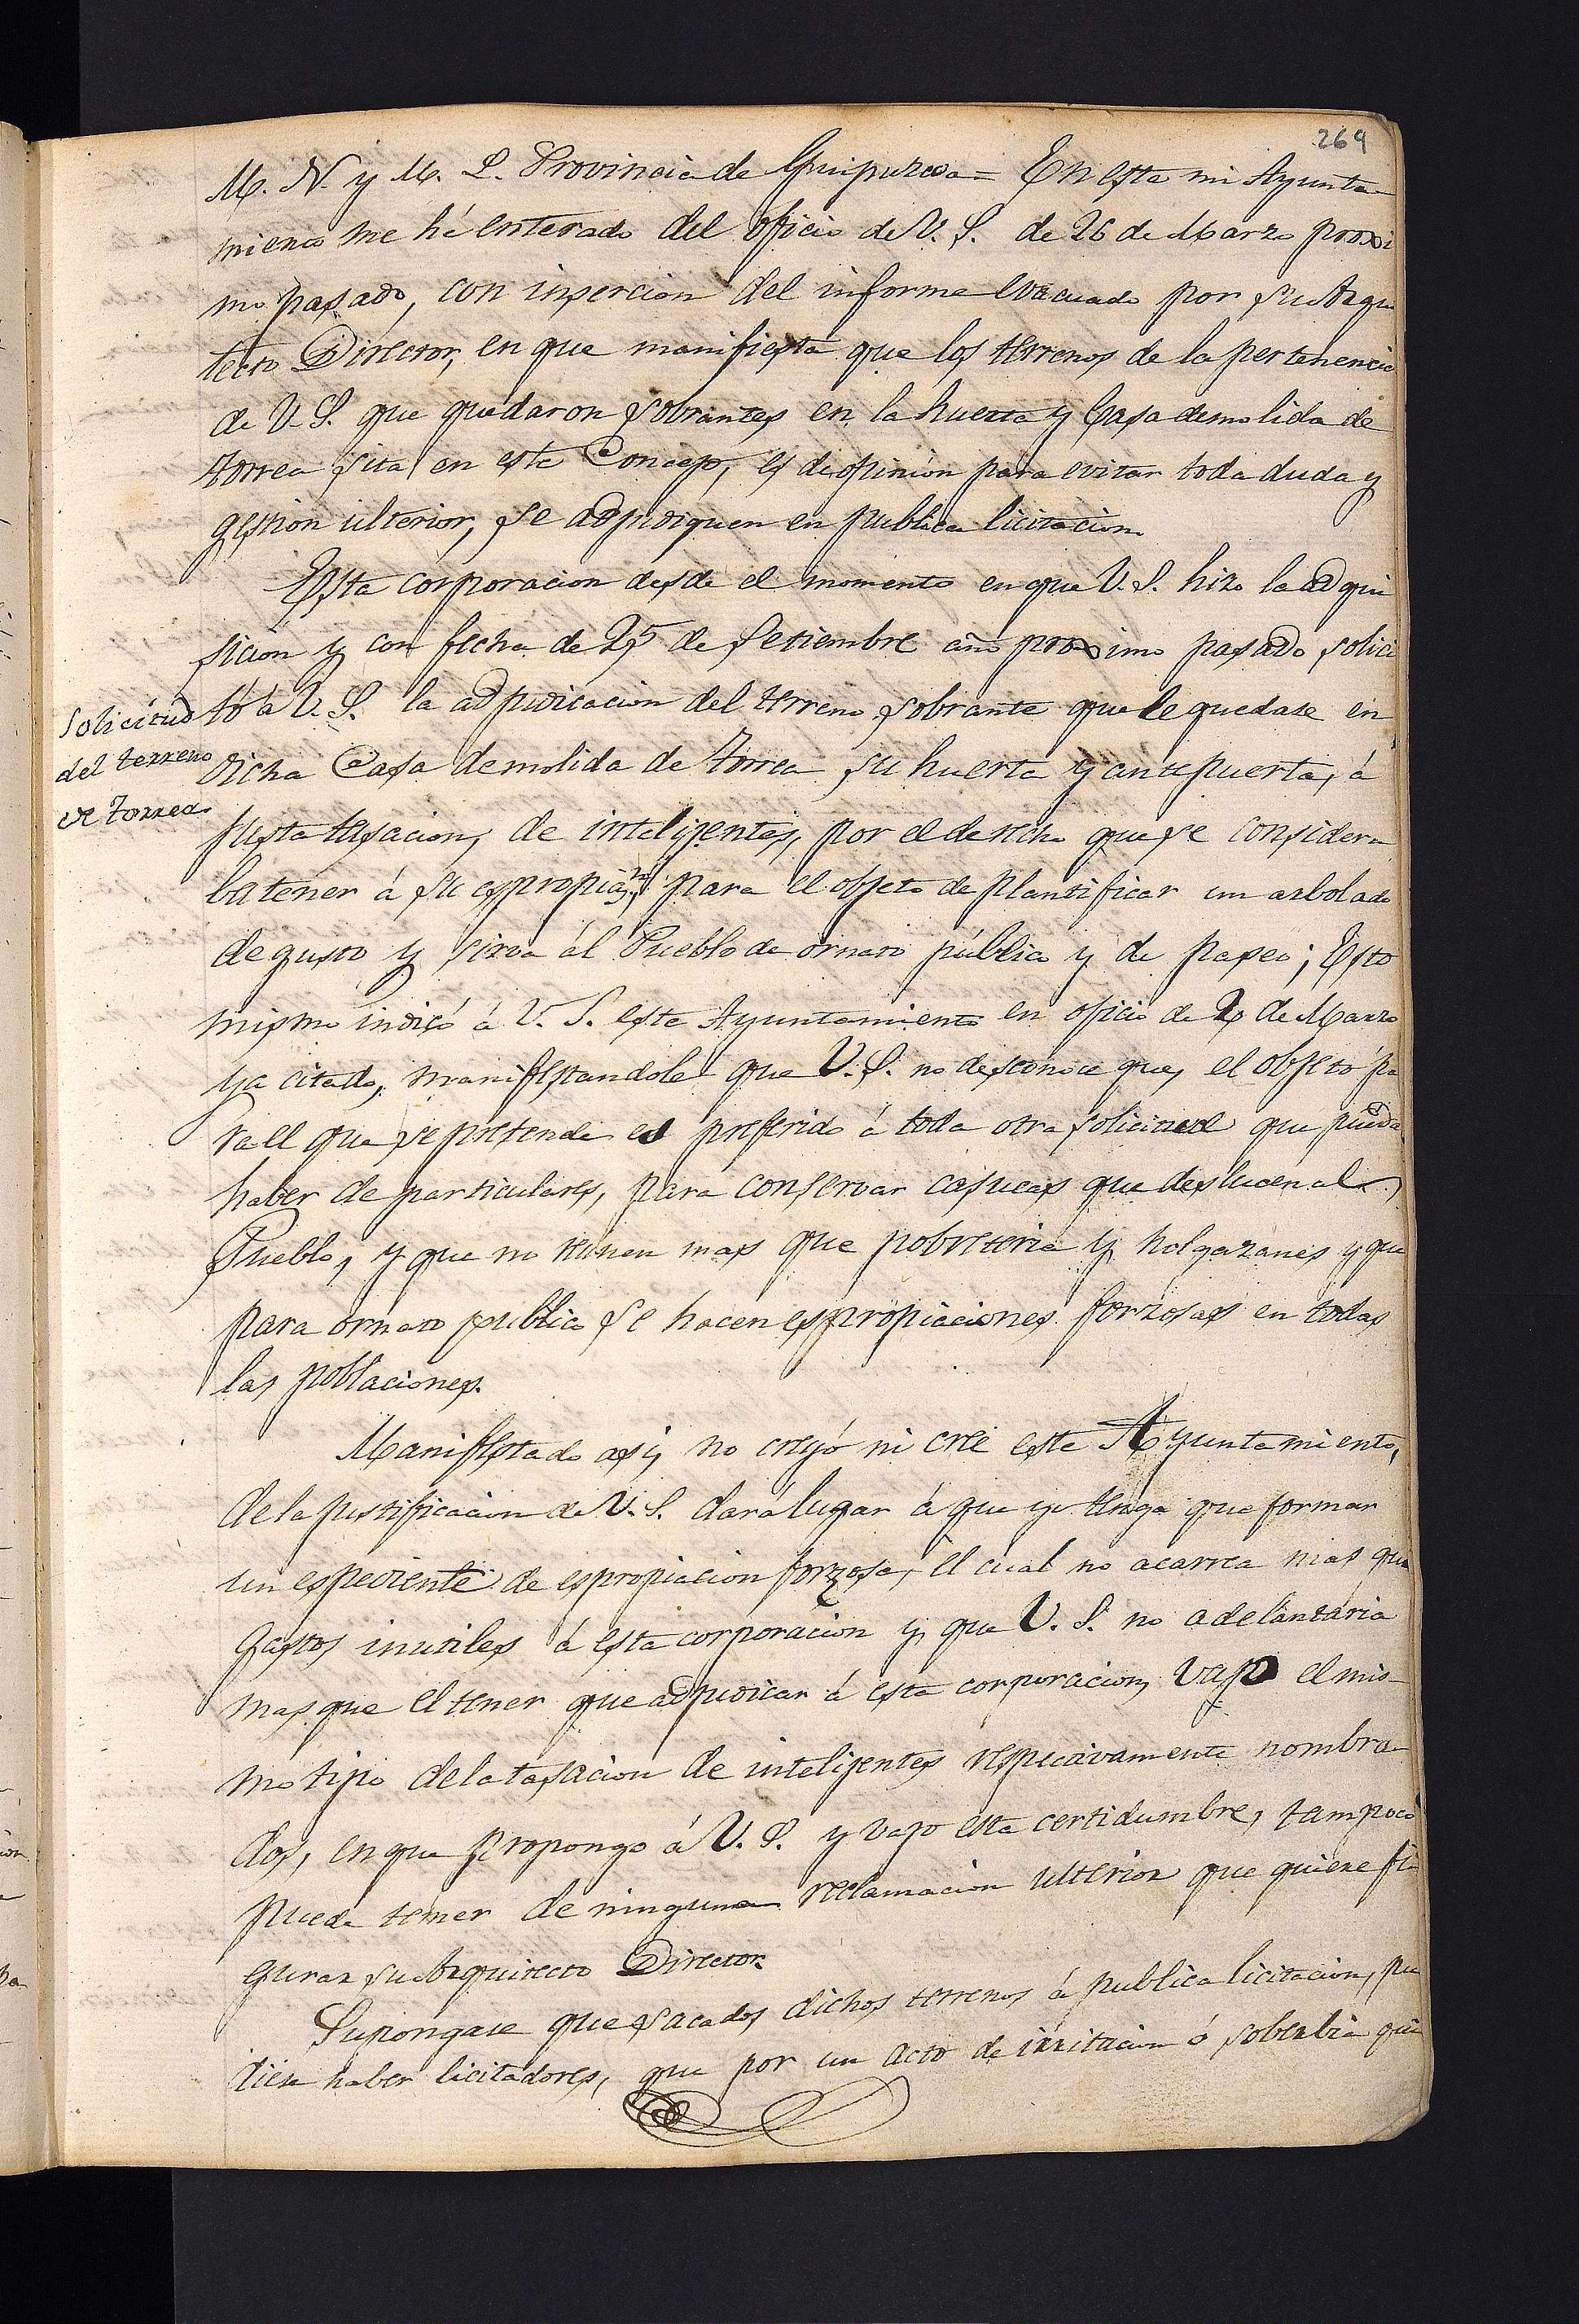 269
M. N. y M. L. Provincia de Guipuzcoa = En esta mi Ayunta-
miento me hé enterado del oficio de V. S. de 26 de Marzo proxi
mo pasado, con insercion del informe evacuado por su Arqui
tecto Director, en que manifiesta que los terrenos de la pertenencia
de V. S. que quedaron sobrantes en la huerta y Casa demolida de
Torrea sita en este Concejo, es de opinion para evitar toda duda y
gestion ulterior, se adjudiquen en publica licitacion.
Esta corporacion desde el momento en que V. S. hizo la adqui
sicion y con fecha de 25 de Setiembre año proximo pasado solici
tó á V. S. la adjudicacion del terreno sobrante que le quedase en
Solicitud
del terreno
de Torrea
dicha Casa demolida de Torrea su huerta y antepuerta, á
justa tasacion, de intelijentes, por el derecho que se considera
ba tener á su espropiacⁿ, para el objeto de plantificar un arbolado
de gusto y sirva ál Pueblo de ornato público y de paseo; Esto
mismo indicó á V. S. este Ayuntamiento en oficio de 20 de Marzo
ya citado, manifestandole que V. S. no desconoce que, el objeto pa
ra el que se pretende es preferido á toda otra solicitud que pueda
haber de particulares, para conservar casucas que deslucen al
Pueblo, y que no reúnen mas que pobreteria y holgazanes y que
para ornato publico se hacen espropiaciones forzosas en todas
las poblaciones.
Manifestado asi, no creyó ni cree este Ayuntamiento,
de la justificacion de V. S. dará lugar á que yo tenga que formar
un espediente de espropiacion forzosa, el cual no acarrea mas que
gastos inutiles á esta corporacion y que V. S. no adelantaria
mas que el tener que adjudicar á esta corporacion, vajo el mis-
mo tipo de la tasacion de intelijentes respectivamente nombra-
dos, en que propongo á V. S. y vajo esta certidumbre, tampoco
puede temer de ninguna reclamacion ulterior que quiere fi-
gurar su Arquitecto Director.
Supongase que sacados dichos terrenos á publica licitacion, pu
diese haber licitadores, que por un acto de irritacion ó soberbia qui